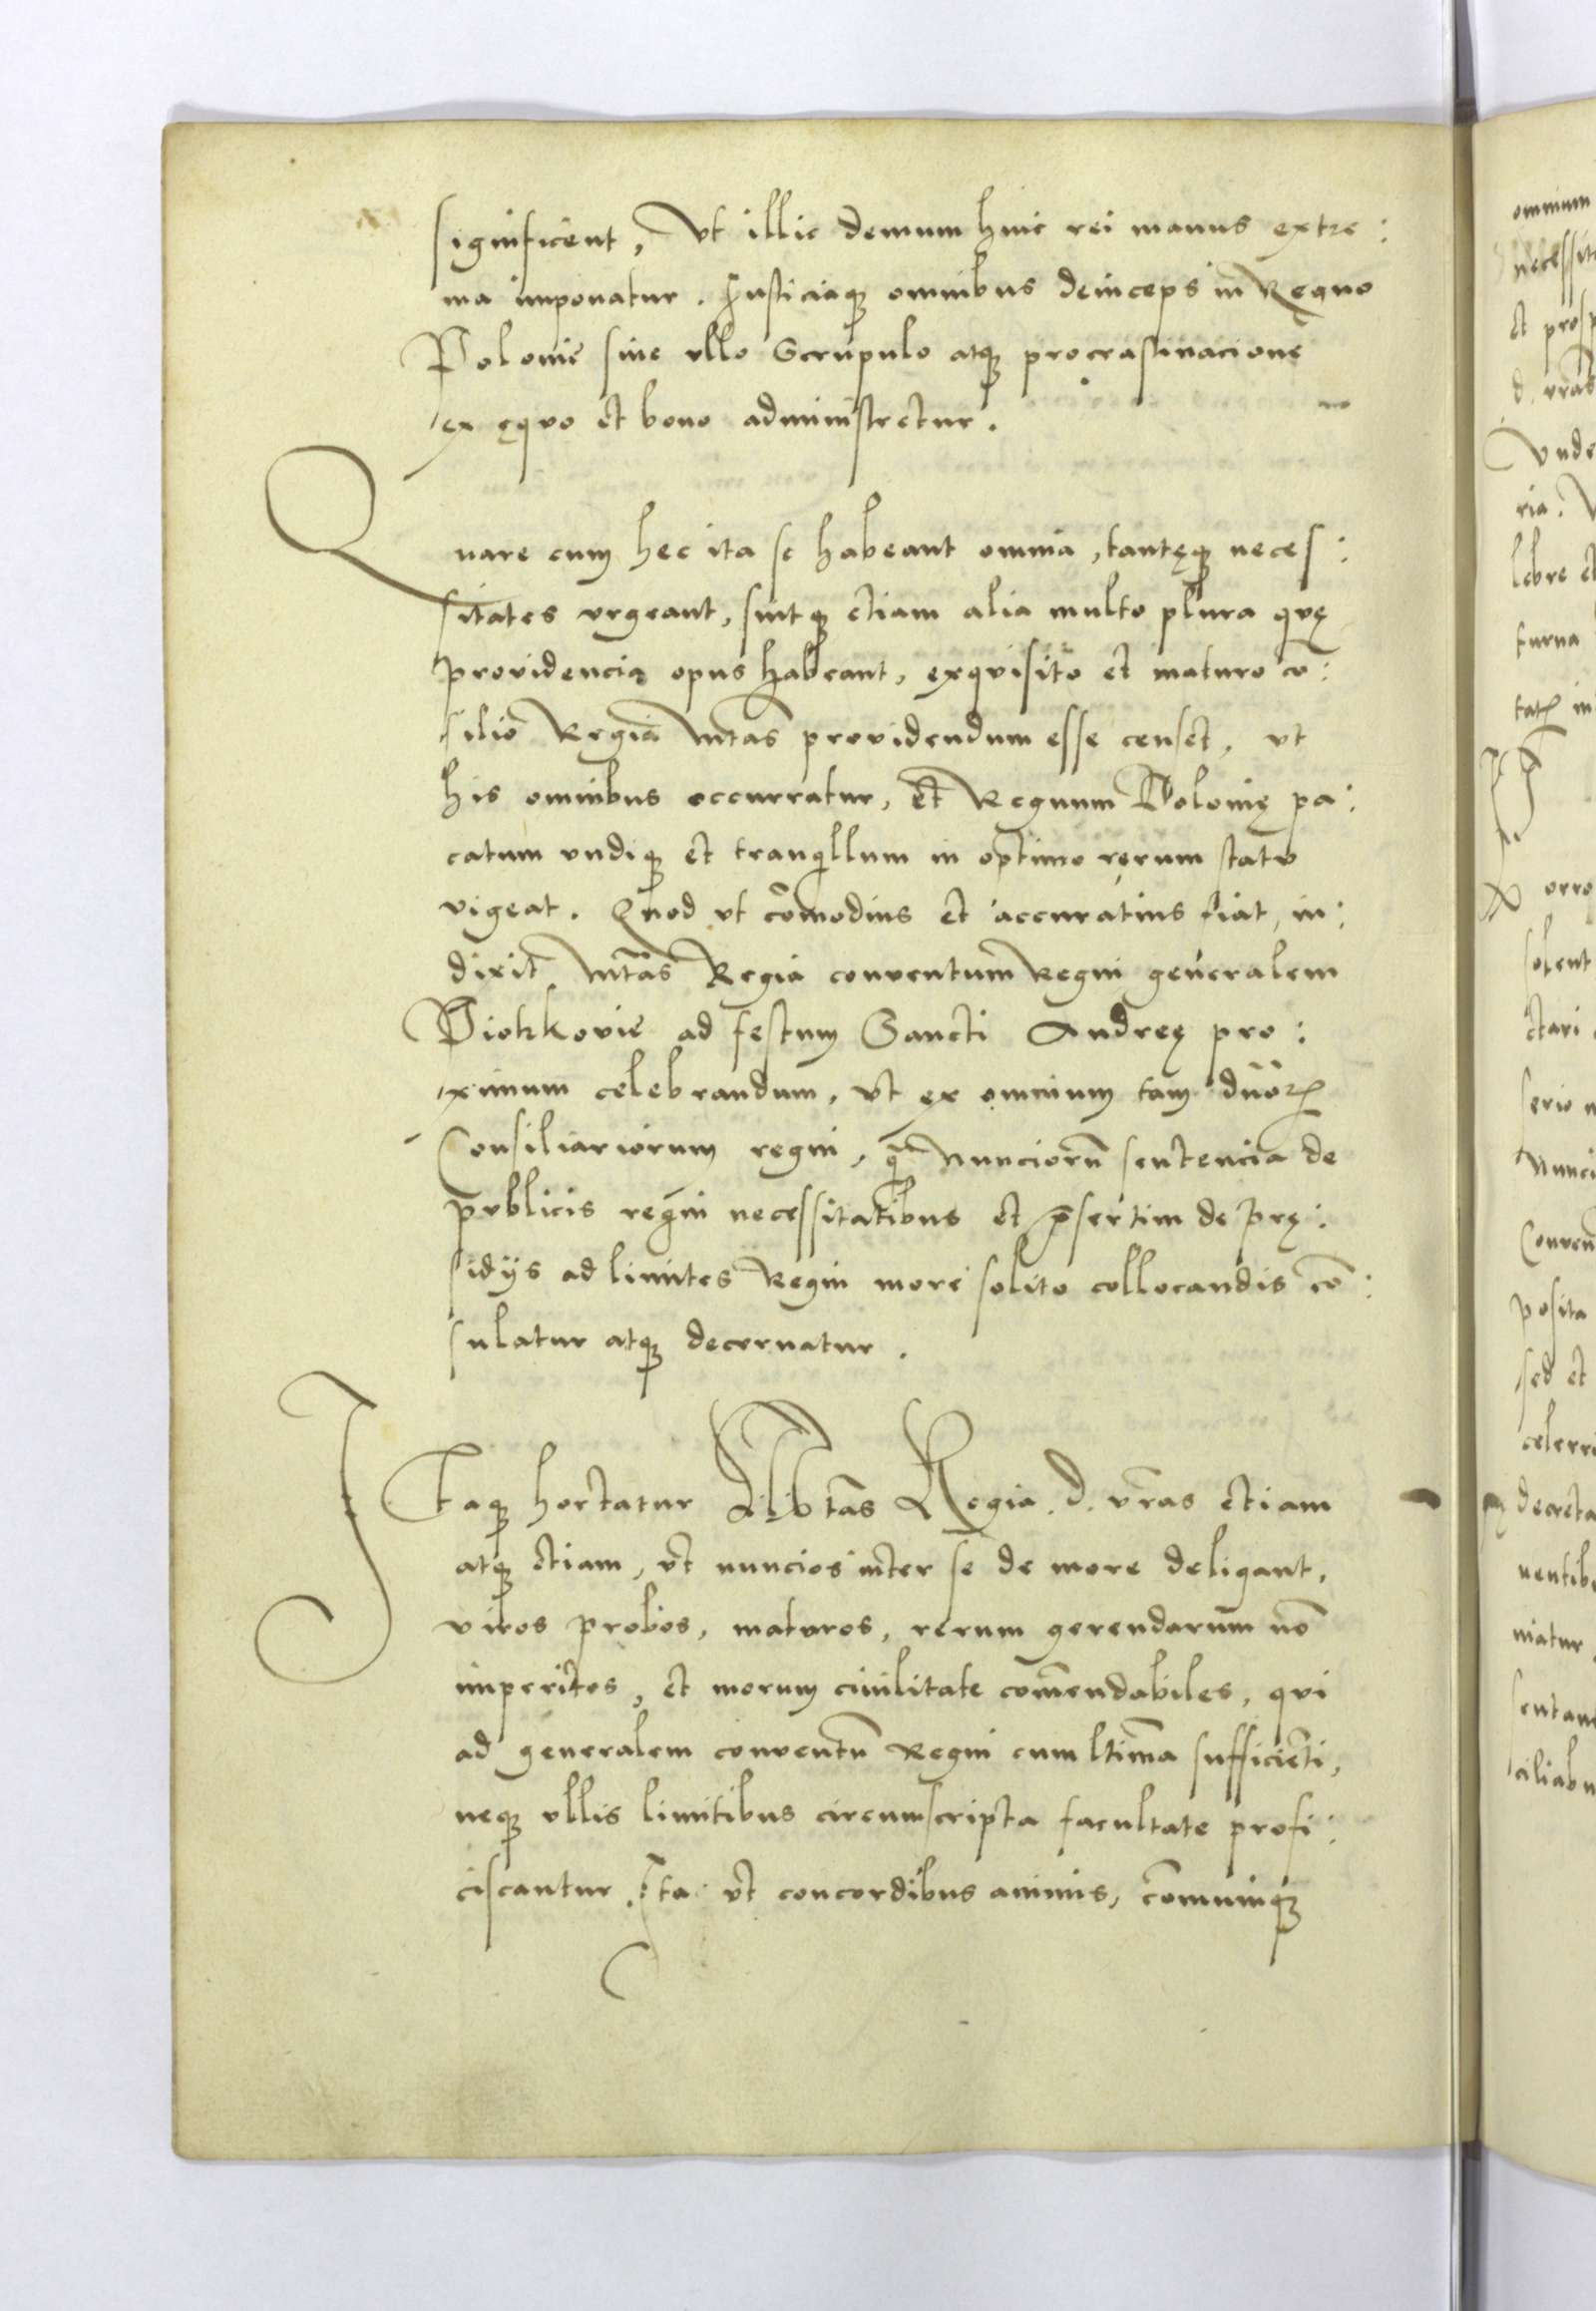 significent, Vt illic demum huic rei manus extre:
ma imponatur. Justiciaq omnibus deinceps in Regno
Polonie sine vllo Scrupulo atq procrastinacione
ex ęquo et bono administretur.
Quare cum hec ita se habeant omnia, tantęq neces:
sitates vrgeant, sintq etiam alia multo plura quę
providencia opus habeant, exquisito et maturo cō:
silio Regia Mtas providendum esse censet, vt
his omnibus occurratur, et Regnum Polonię pa:
catum vndiq et tranqllum in optimo rerum statu
vigeat. Quod vt cōmodius et accuratius fiat, in:
dixit Mtas Regia conventum Regni generalem
Piotrkovie ad festum Sancti Andreę pro:
ximum celebrandum, vt ex omnium tam dnōꝝ
Consiliariorum regni, q̄ Nunciorū sentencia de
publicis regni necessitatibus et p̄sertim de prę:
sidijs ad limites Regni more solito collocandis cō:
sulatur atq decernatur.
Itaq hortatur Mtas Regia. d. vr̄as etiam
atq etiam, vt nuncios inter se de more deligant,
viros probos, maturos, rerum gerendarum nō
imperitos, et morum civilitate comēndabiles, qui
ad generalem conventū Regni cum ltīma sufficiēti,
neq vllis limitibus circumscripta facultate profi:
ciscantur. Ita vt concordibus animis, cōmuniq
omnium
necessit
et prosp
d. vras
Vnde
ria.
lebre et
turna
orro
solent
ctari
serio
Nunci
Conven
posita
sed et
celerri
decreta
ventib
niatur
sentan
ciliabu